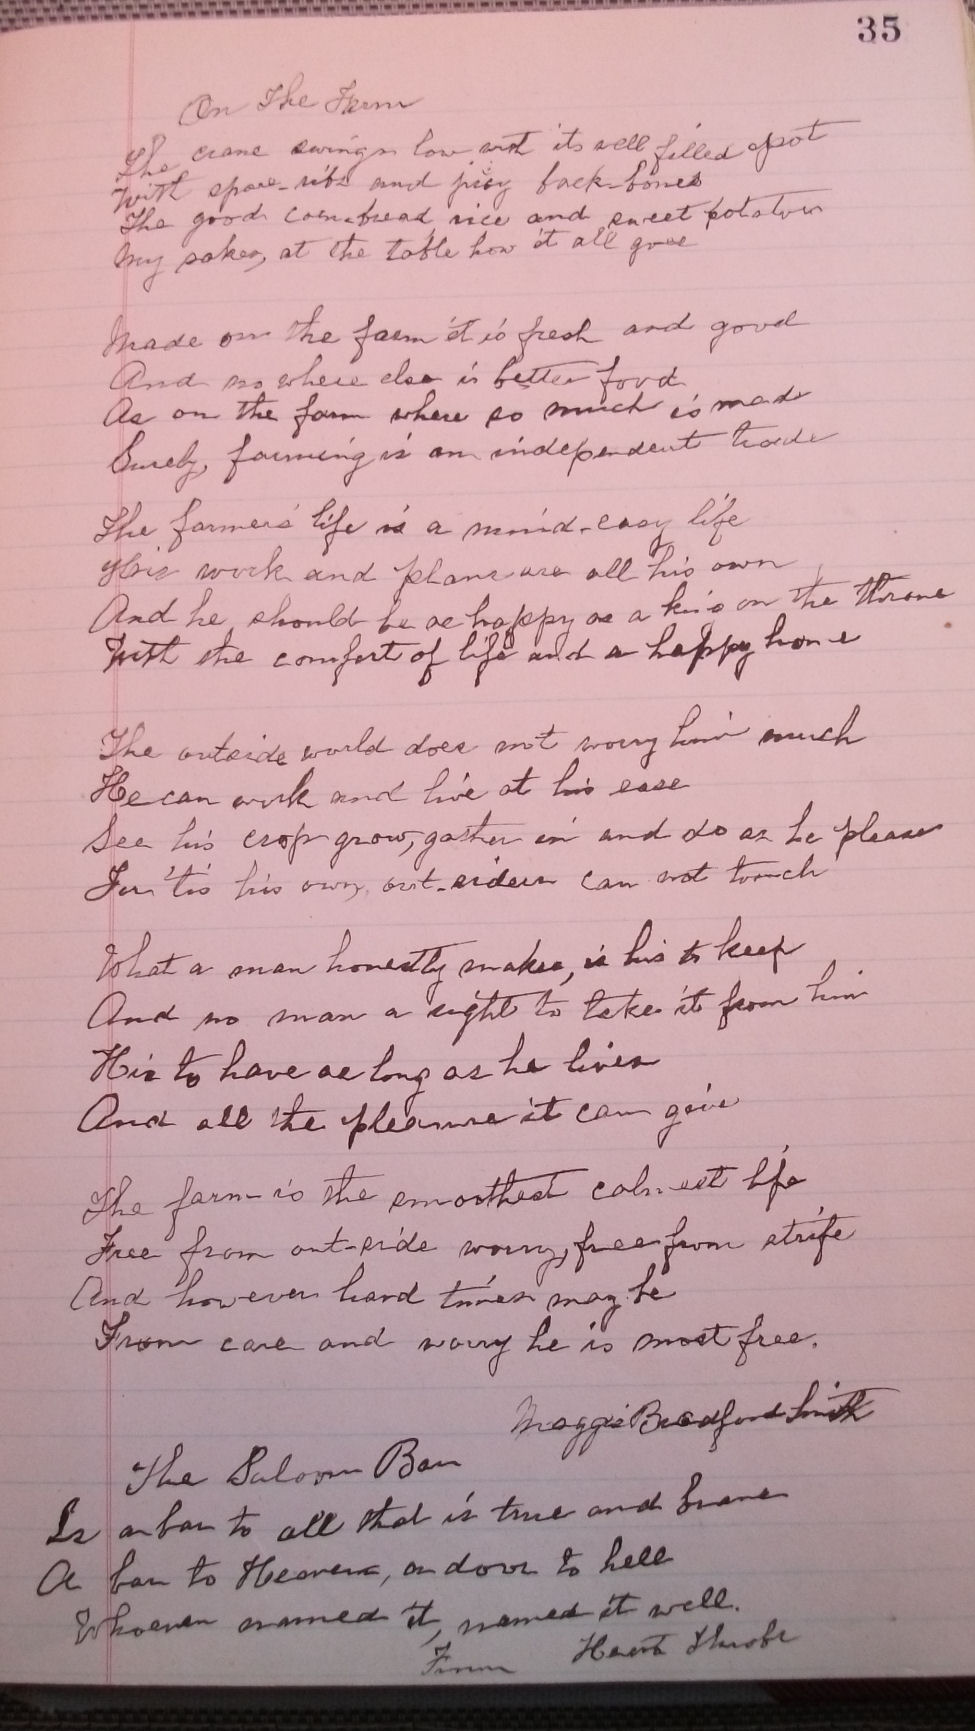 35
On The Farm
The crane swings low with its well filled pot
With spare-ribs and juicy back-bones
The good corn-bread rice and sweet potatoes
My sakes, at the table how it all goes
Made on the farm it is fresh and good
And no where else is better food
As on the farm where so much is made
Surely, farming is an independent trade
The farmers' life is a mind-easy life
His work and plans are all his own
And he should be as happy as a king on the throne
With the comfort of life and a happy home
The outside world does not worry him much
He can work and live at his ease
See his crop grow, gather in and do as he please
For 'tis his own, out-siders can not touch
What a man honestly makes, is his to keep
And no man a right to take it from him
His to have as long as he lives
And all the pleasure it can give
The farm is the smoothest calmest life
Free from out-side worry, free from strife
And however hard times may be
From care and worry he is most free.
Maggie Bradford Smith
The Saloon Bar
Is a bar to all that is true and brave
A bar to Heaven, a door to hell
Whoever named it, named it well.
From Heart Throbs